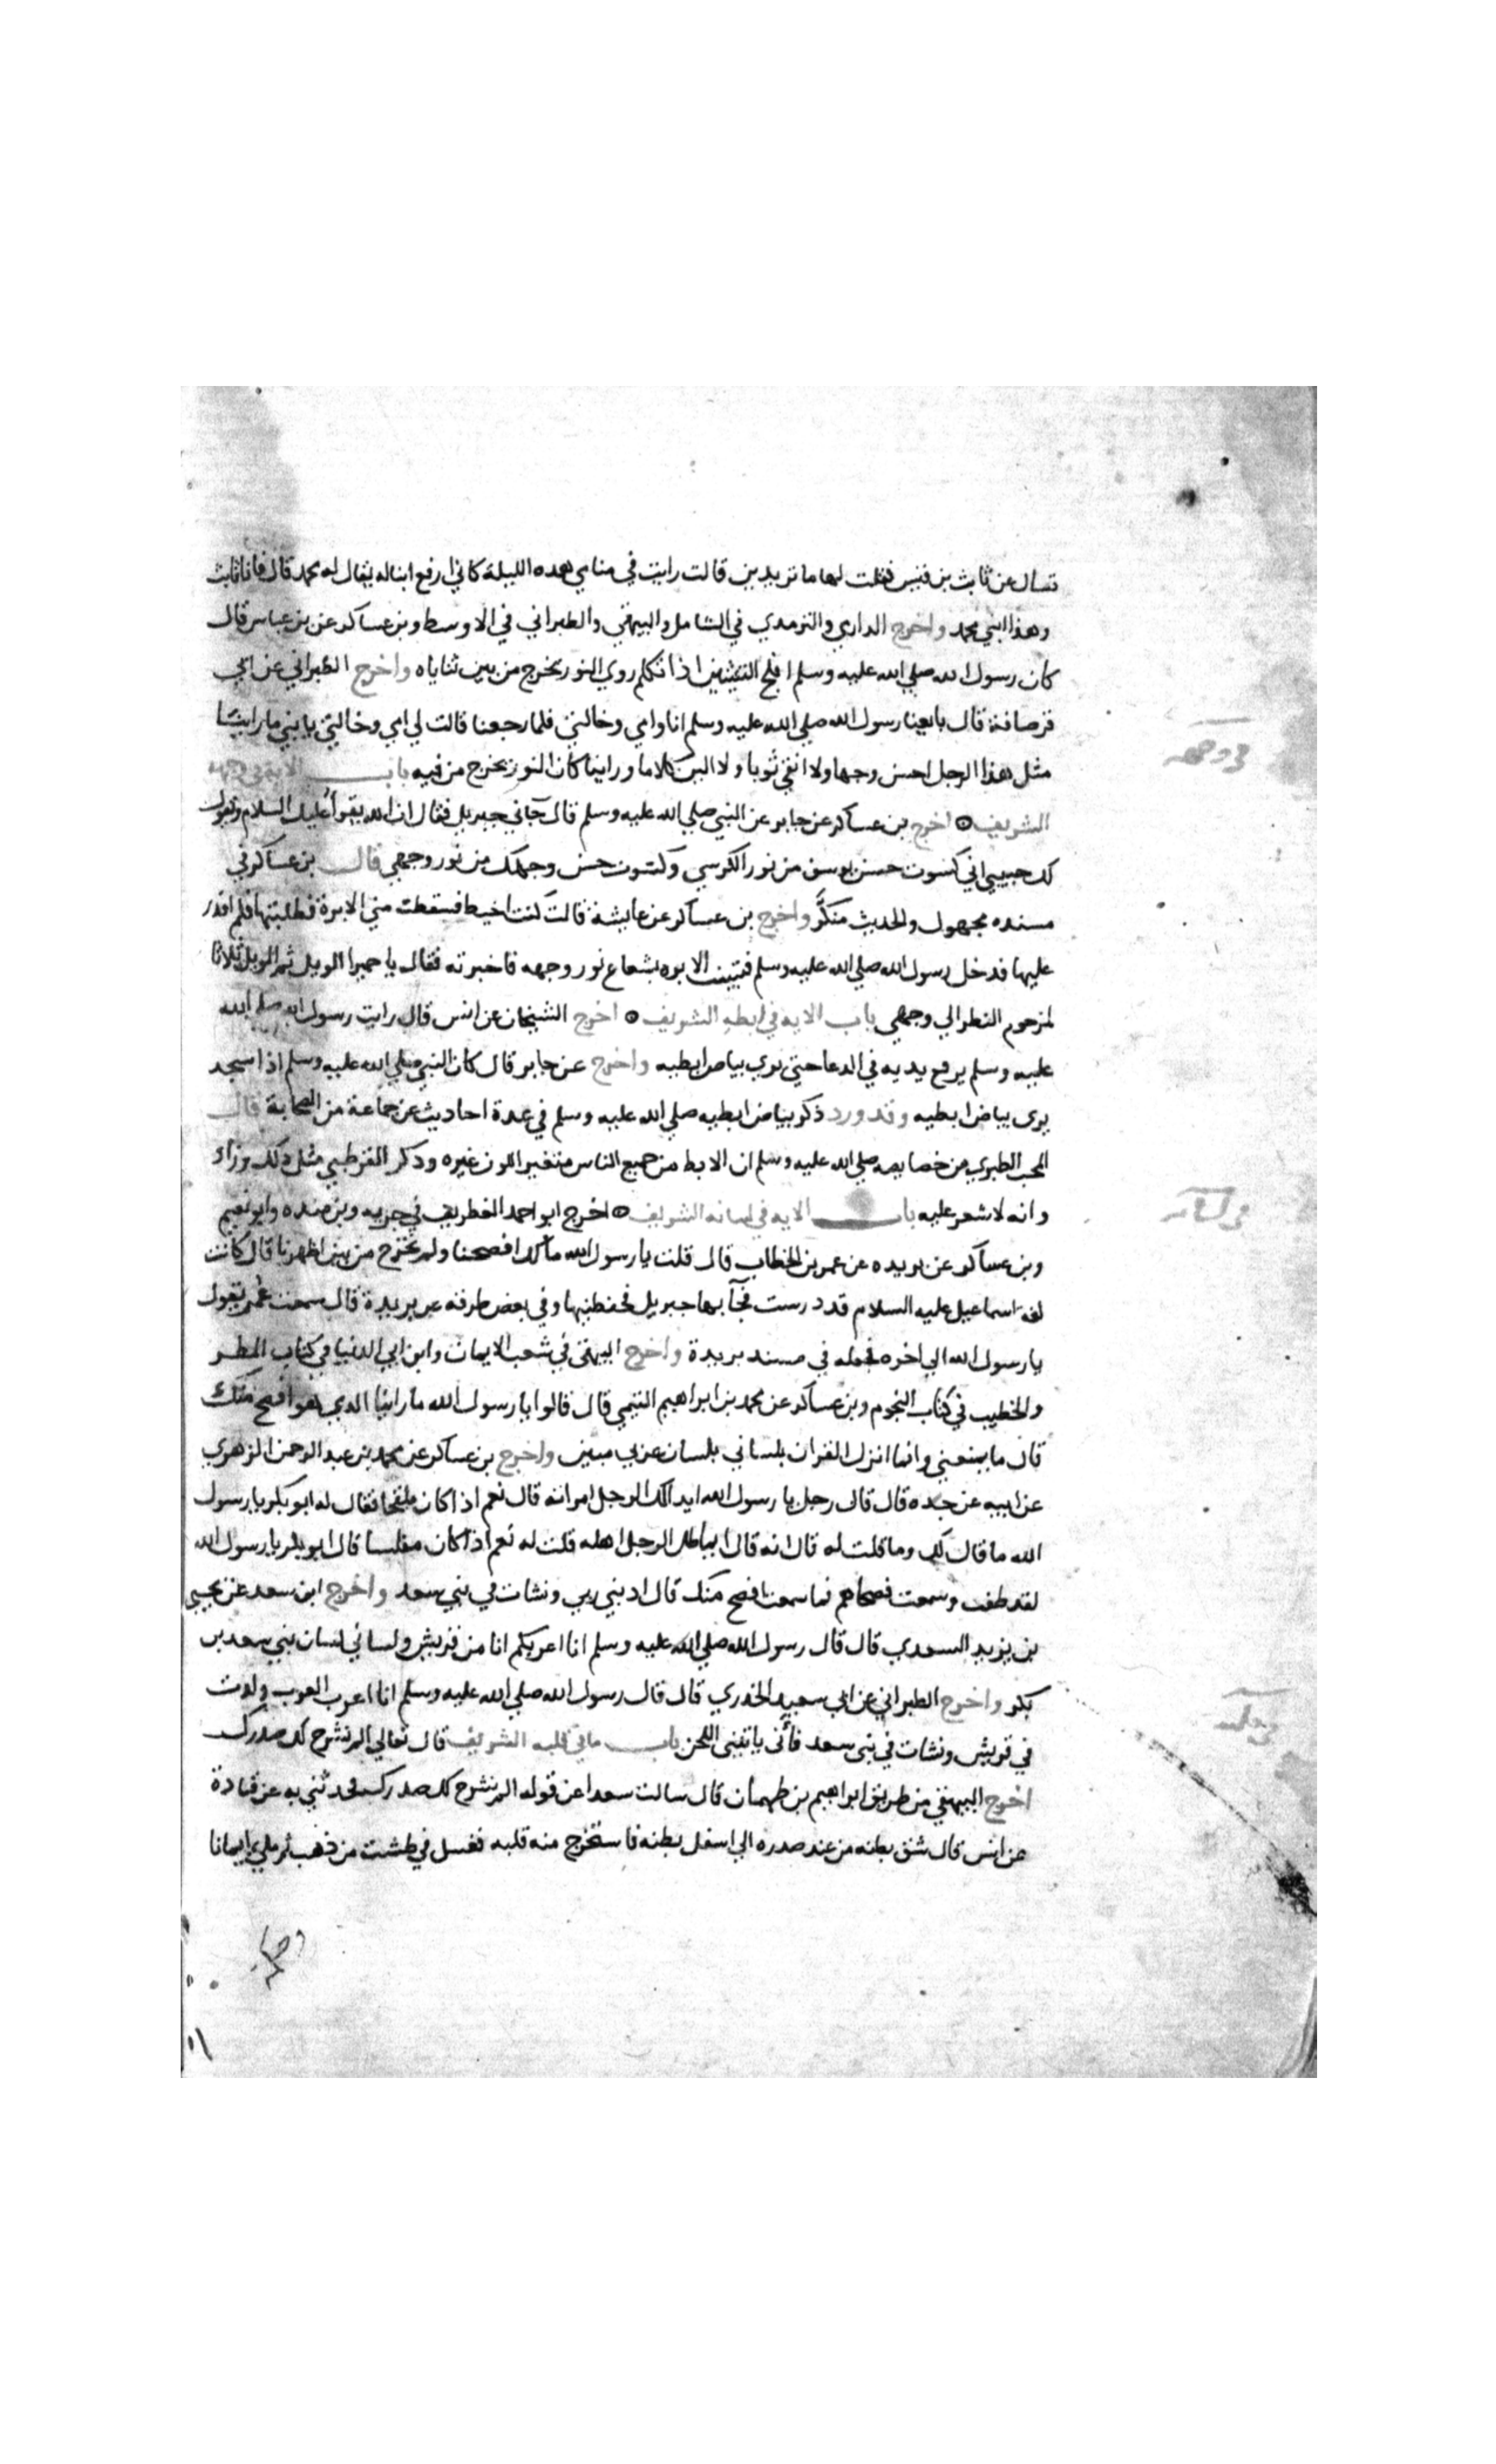 تسال عن ثابث بن قيس فقلت لها ما تريدين قالت رايت في منامي هذه الليلة كاني ارفع ابنا له يقال له محمد قال فانا ثابث
وهذا ابني محمد واخرج الداري والترمدي في الشامل والبيهقي والطبراني في الاوسط وبن عساكر عن بن عباس قال
كان رسول الله صلي الله عليه وسلم افلح الثنيتين اذا تكلم روي النور يخرج من بين ثناياه واخرج الطبراني عن ابي
قرصافة قال بايعنا رسول الله صلي الله عليه وسلم انا وامي وخالتي فلما رجعنا قالت لي امي وخالتي يا بني ما راينا
مثل هذا الرجل احسن وجها ولا انقي ثوبا ولا الين كلاما وراينا كان النور يخرج من فيه باب الاية في وجهه
الشريف ۞ اخرج بن عساكر عن جابر عن النبي صلي الله عليه وسلم قال جآني جبريل فقال ان الله يقرأ عليك السلام ويقول
لك حبيبي اني كسوت حسن يوسف من نور الكرسي وكسوت حسن وجهك من نور وجهي قال بن عساكر في
مسنده مجهول والحديث منكر واخرج بن عساكر عن عايشة قالت كنت اخيط فسقطت مني الابرة فطلبتها فلم اقدر
عليها فدخل رسول الله صلي الله عليه وسلم فتبينت الابره بشعاع نور وجهه فاخبرته فقال يا حميرا الويل ثم الويل ثلاثا
لمن حرم النظر الي وجهي باب الايه في ابطه الشريف ۞ اخرج الشيخان عن انس قال رايت رسول الله صلي الله
عليه وسلم يرفع يديه في الدعا حتي يري بياض ابطيه واخرج عن جابر قال كان النبي صلي الله عليه وسلم اذا سجد
يرى بياض ابطيه وقد ورد ذكر بياض ابطيه صلي الله عليه وسلم في عدة احاديث عن جماعة من الصحابة قال
المحب الطبري من خصايصه صلي الله عليه وسلم ان الابط من جميع الناس متغير اللون غيره وذكر القرطبي مثل ذلك وزاد
وانه لا شعر عليه باب الايه في لسانه الشريف ۞ اخرج ابو احمد الغطريف في جزيه وبن منده وابو نعيم
وبن عساكر عن بريده عن عمر بن الخطاب قال قلت يا رسول الله مالك افصحنا ولم تخرج من بين اظهرنا قال كانت
لغة اسماعيل عليه السلام قد درست فجآ بها جبريل فحفظنيها وفي بعض طرقه عن بريدة قال سمعت عمر يقول
يا رسول الله الي اخره فجعله في مسند بريدة واخرج البيهقي في شعب الايمان وابن ابي الدنيا في كتاب المطر
والخطيب في كتاب النجوم وبن عساكر عن محمد بن ابراهيم التيمي قال قالوا يا رسول الله ما راينا الدي هو افصح منك
قال ما يمنعني وانما انزل القران بلساني بلسان عربي مبين واخرج بن عساكر عن محمد بن عبد الرحمن الزهري
عن ابيه عن جده قال قال رجل يا رسول الله ايدالك الرجل امراته قال نعم اذا كان ملفجا فقال له ابو بكر يا رسول
الله ما قال لك وما قلت له قال انه قال ايماطل الرجل اهله قلت له نعم اذا كان مفلسا قال ابو بكر يا رسول الله
لقد طفت وسمعت فصحاهم فما سمعنا افصح منك قال ادبني ربي ونشات في بني سعد واخرج ابن سعد عن يحيي
بن يزيد السعدي قال قال رسول الله صلي الله عليه وسلم انا اعربكم انا من قريش ولساني لسان بني سعد بن
بكر واخرج الطبراني عن ابي سعيد الخدري قال قال رسول الله صلي الله عليه وسلم انا اعرب العرب ولدت
في قريش ونشات في بني سعد فاني ياتيني اللحن باب ما في قلبه الشريف قال تعالي الم نشرح لك صدرك
اخرج البيهقي من طريق ابراهيم بن طهمان قال سالت سعدا عن قوله الم نشرح لك صدرك فحدثني به عن قتادة
عن انس قال شق بطنه من عند صدره الي اسفل بطنه فاستخرج منه قلبه فغسل في طشت من ذهب ثم ملي ايمانا
في وجهه
في لسانه